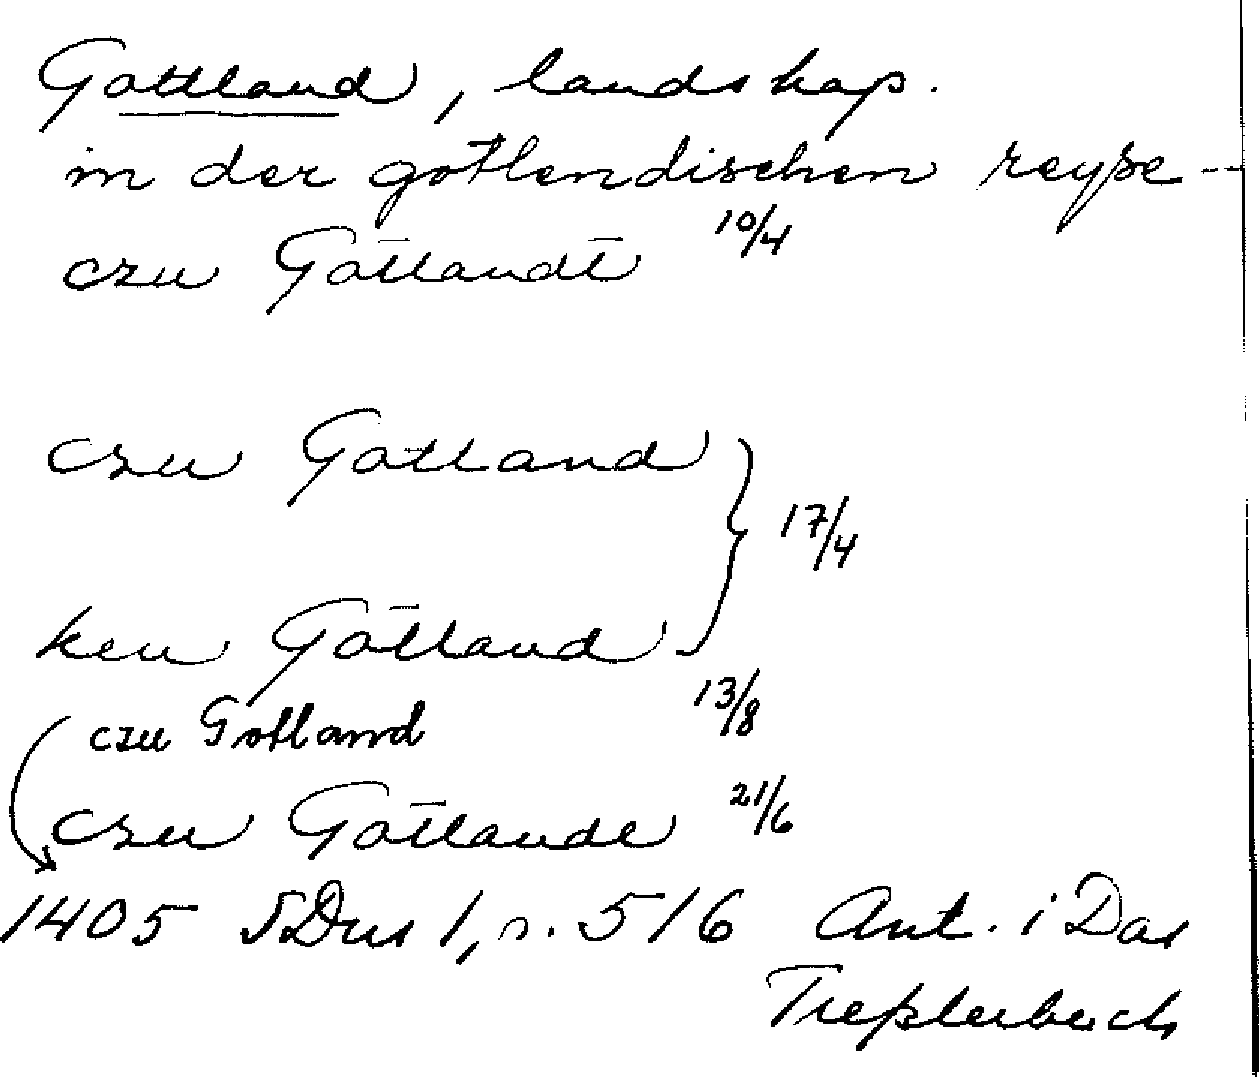 Gottland, landskap.
in der gotlendischen reyße --
czu Gotlandt 10/4
czu Gotland
17/4
ken Gotland
13/8
czu Gotland
czu Gotlande 21/6
1405 SDns 1, s. 516 Ant. i Das
Treßlerbuch